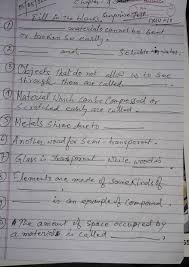 Chapter - 
Fill In the blanks. Surprise Test
① materials cannot be bent
or broken so easily.
② and Soluble in water.
③ Objects that do not allow us to see
through them are called
④ Material which can be Compressed or
Scratched easily are called
⑤ Metals shine due to
⑥ Another word for Semi-transparent.
⑦ Glass is transparent while wood is
⑧ Elements are made of Same kinds of
is an example of Compound.
The amount of Space occupied by
a material is called